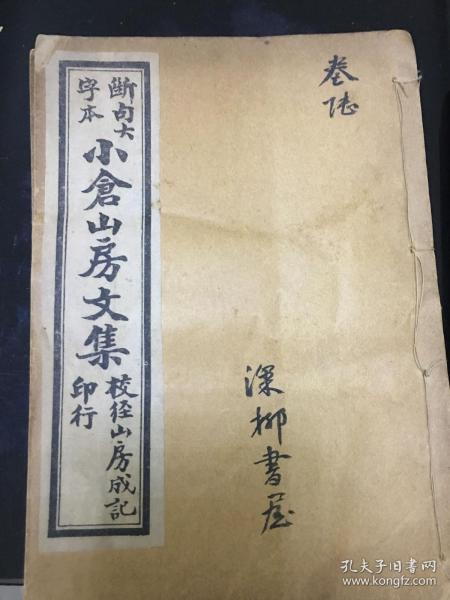 卷陆
深柳書屋
斷句大
字本
小倉山房文集
校经山房成記
印行
孔夫子旧书网
www.kongfz.com